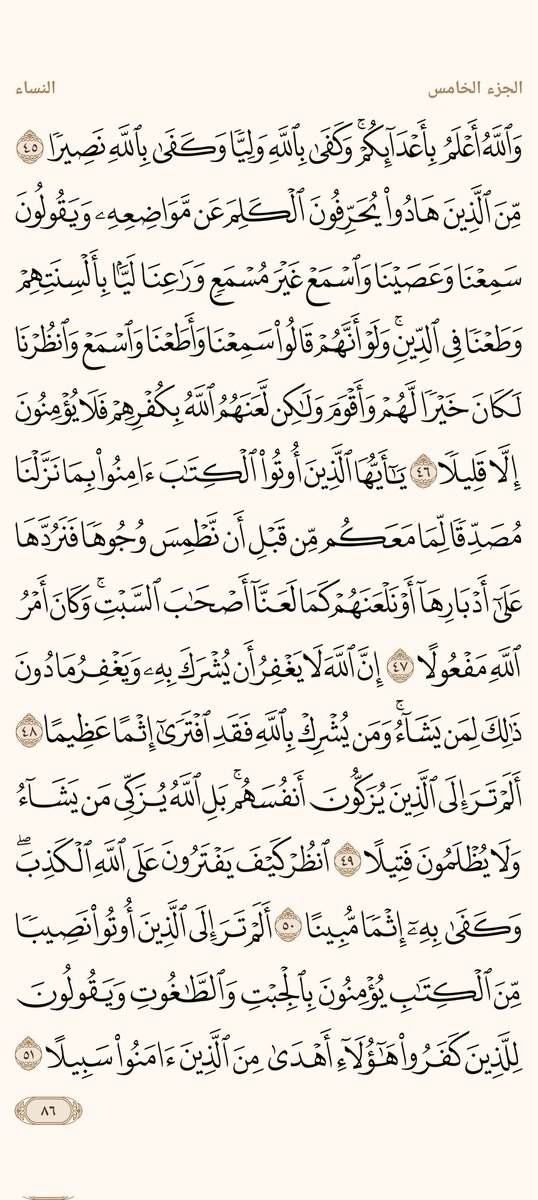 الجزء الخامس
النساء
وَٱللَّهُ أَعْلَمُ بِأَعْدَآئِكُمْۚ وَكَفَىٰ بِٱللَّهِ وَلِيّٗا وَكَفَىٰ بِٱللَّهِ نَصِيرٗا ٤٥
مِّنَ ٱلَّذِينَ هَادُواْ يُحَرِّفُونَ ٱلۡكَلِمَ عَن مَّوَاضِعِهِۦ وَيَقُولُونَ
سَمِعۡنَا وَعَصَيۡنَا وَٱسۡمَعۡ غَيۡرَ مُسۡمَعٖ وَرَٰعِنَا لَيَّۢا بِأَلۡسِنَتِهِمۡ
وَطَعۡنٗا فِي ٱلدِّينِۚ وَلَوۡ أَنَّهُمۡ قَالُواْ سَمِعۡنَا وَأَطَعۡنَا وَٱسۡمَعۡ وَٱنظُرۡنَا
لَكَانَ خَيۡرٗا لَّهُمۡ وَأَقۡوَمَ وَلَٰكِن لَّعَنَهُمُ ٱللَّهُ بِكُفۡرِهِمۡ فَلَا يُؤۡمِنُونَ
إِلَّا قَلِيلٗا ٤٦ يَٰٓأَيُّهَا ٱلَّذِينَ أُوتُواْ ٱلۡكِتَٰبَ ءَامِنُواْ بِمَا نَزَّلۡنَا
مُصَدِّقٗا لِّمَا مَعَكُم مِّن قَبۡلِ أَن نَّطۡمِسَ وُجُوهٗا فَنَرُدَّهَا
عَلَىٰٓ أَدۡبَارِهَآ أَوۡ نَلۡعَنَهُمۡ كَمَا لَعَنَّآ أَصۡحَٰبَ ٱلسَّبۡتِۚ وَكَانَ أَمۡرُ
ٱللَّهِ مَفۡعُولًا ٤٧ إِنَّ ٱللَّهَ لَا يَغۡفِرُ أَن يُشۡرَكَ بِهِۦ وَيَغۡفِرُ مَا دُونَ
ذَٰلِكَ لِمَن يَشَآءُۚ وَمَن يُشۡرِكۡ بِٱللَّهِ فَقَدِ ٱفۡتَرَىٰٓ إِثۡمًا عَظِيمًا ٤٨
أَلَمۡ تَرَ إِلَى ٱلَّذِينَ يُزَكُّونَ أَنفُسَهُمۚ بَلِ ٱللَّهُ يُزَكِّي مَن يَشَآءُ
وَلَا يُظۡلَمُونَ فَتِيلًا ٤٩ ٱنظُرۡ كَيۡفَ يَفۡتَرُونَ عَلَى ٱللَّهِ ٱلۡكَذِبَۖ
وَكَفَىٰ بِهِۦٓ إِثۡمٗا مُّبِينًا ٥٠ أَلَمۡ تَرَ إِلَى ٱلَّذِينَ أُوتُواْ نَصِيبٗا
مِّنَ ٱلۡكِتَٰبِ يُؤۡمِنُونَ بِٱلۡجِبۡتِ وَٱلطَّٰغُوتِ وَيَقُولُونَ
لِلَّذِينَ كَفَرُواْ هَٰٓؤُلَآءِ أَهۡدَىٰ مِنَ ٱلَّذِينَ ءَامَنُواْ سَبِيلًا ٥١
٨٦